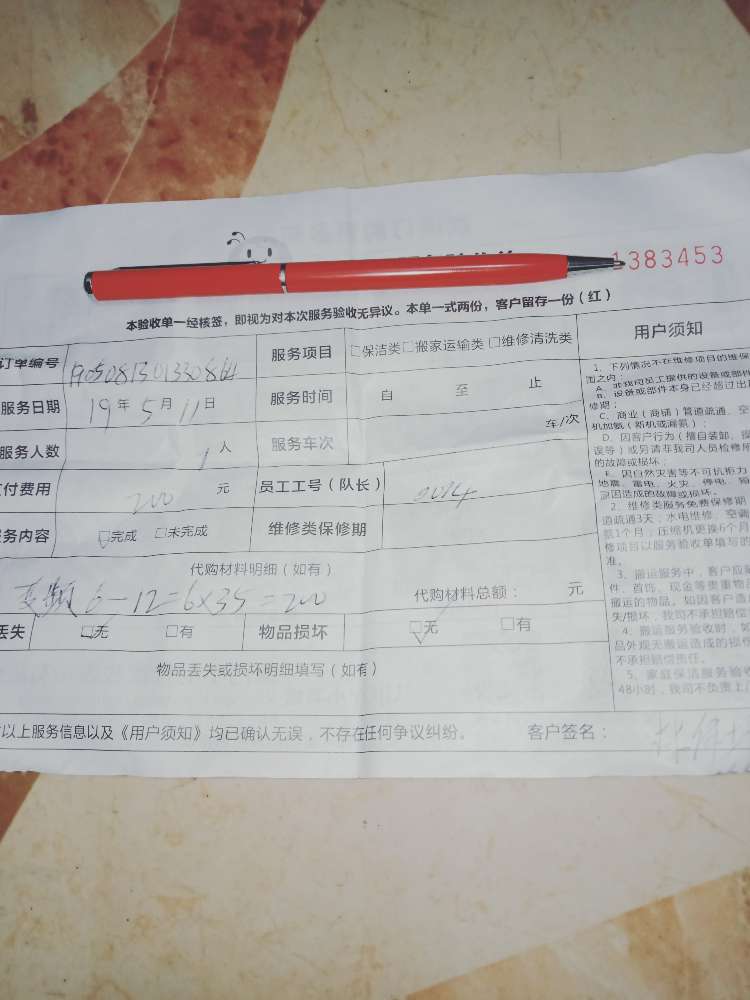 1383453
本验收单一经核签，即视为对本次服务验收无异议。本单一式两份，客户留存一份（红）
订单编号 服务项目 □保洁类□搬家运输类 □维修清洗类 用户须知
服务日期 19年5月11日 服务时间 自 至 止
服务人数 1人 服务车次 车/次
支付费用 200 元 员工工号（队长）
服务内容 □完成 □未完成 维修类保修期
代购材料明细（如有）
6-12=6×35=200 代购材料总额： 元
丢失 □无 □有 物品损坏 □无 □有
物品丢失或损坏明细填写（如有）
以上服务信息以及《用户须知》均已确认无误，不存在任何争议纠纷。 客户签名：
1、下列情况不在维修项目的维保
面之内：
A、非我司员工提供的设备或部件
B、设备或部件本身已经超过出
修期；
C、商业（商铺）管道疏通、空
机加氟（新机或漏氟）；
D、因客户行为（擅自装卸、操
误等）或另请非我司人员检修
的故障或损坏；
E、因自然灾害等不可抗拒力
地震、雷电、火灾、停电、
急因造成的故障或损坏。
2、维修类服务免费保修期
道疏通3天，水电维修、空调
氟1个月；压缩机更换6个月
修项目以服务验收单填写的
准。
3、搬运服务中，客户应
件、首饰、现金等贵重物
搬运的物品。如因客户造
失/损坏，我司不承担赔偿
4、搬运服务验收时，如
品外观无搬运造成的损
不承担赔偿责任。
5、家庭保洁服务验收
48小时，我司不负责上